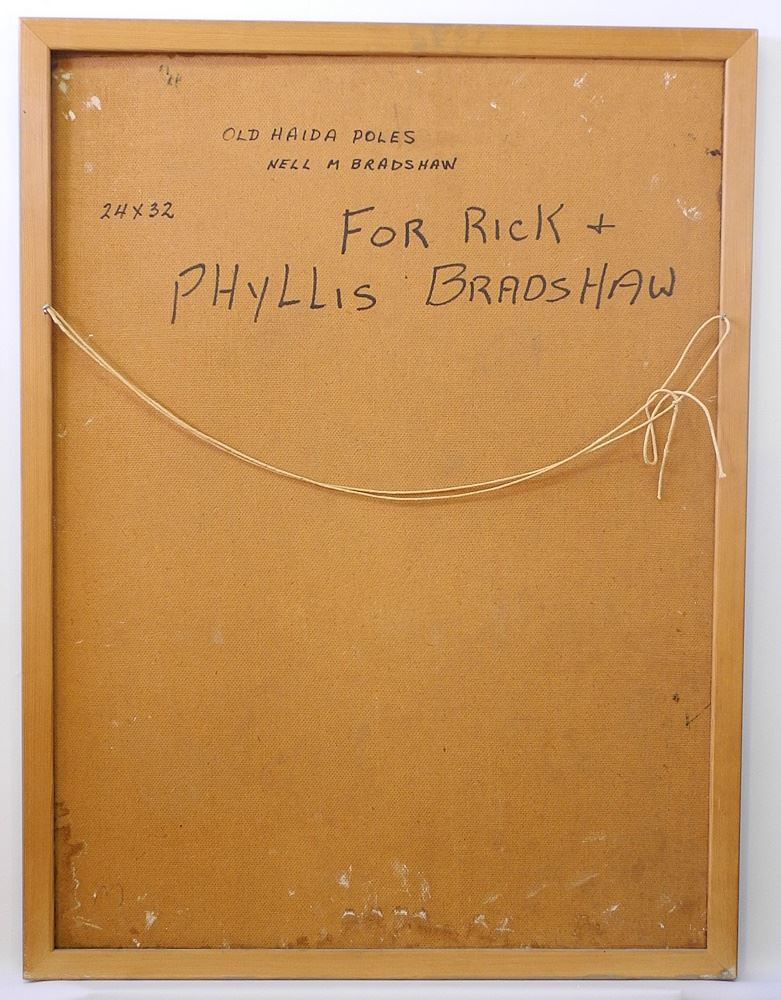 OLD HAIDA POLES
NELL M BRADSHAW
24X32
FOR RICK +
PHYLLIS BRADSHAW